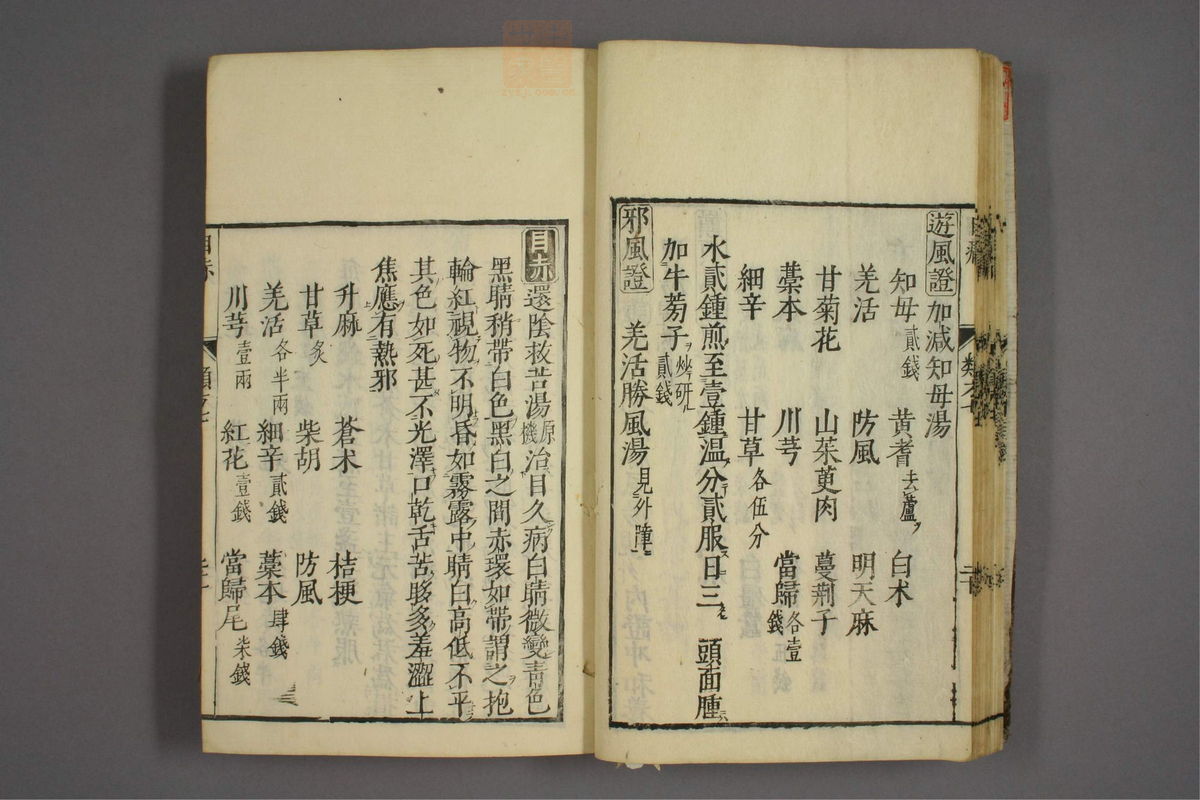 遊風證 加減知毋湯
知毋貳錢 黄耆去蘆 白术
羌活 防風 明天麻
甘菊花 山茱萸肉 蔓荆子
藁本 川芎 當歸各壹錢
細辛 甘草各伍分
水貳鍾煎至壹鍾温分貳服日三 頭面腫
加牛蒡子炒研貳錢
邪風證 羌活勝風湯見外障
目赤 還陰救苦湯原機治目久病白睛微變青色
黑睛稍帶白色黑白之間赤環如帶謂之抱
輪紅視物不明昏如霧露中睛白高低不平
其色如死甚不光澤口乾舌苦眵多羞澀上
焦應有熱邪
升麻 蒼术 桔梗
甘草炙 柴胡 防風
羌活各半兩 細辛貳錢 藁本肆錢
川芎壹兩 紅花壹錢 當歸尾柒錢
目赤
zysj.com.cn